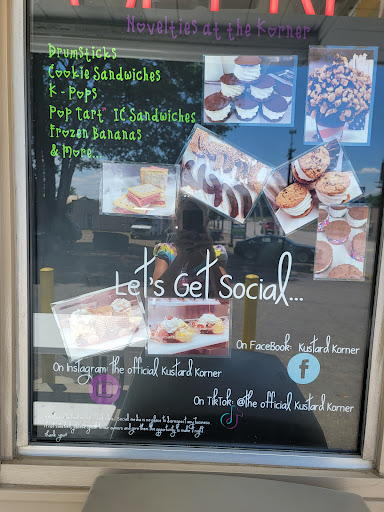 Novelties at the Korner
Drumsticks
Cookie Sandwiches
K - Pops
Pop Tart IC Sandwiches
Frozen Bananas
& More...
Let's Get Social...
On FaceBook: Kustard Korner
f
On Instagram: the official Kustard Korner
On TikTok: @the official Kustard Korner
thank you!